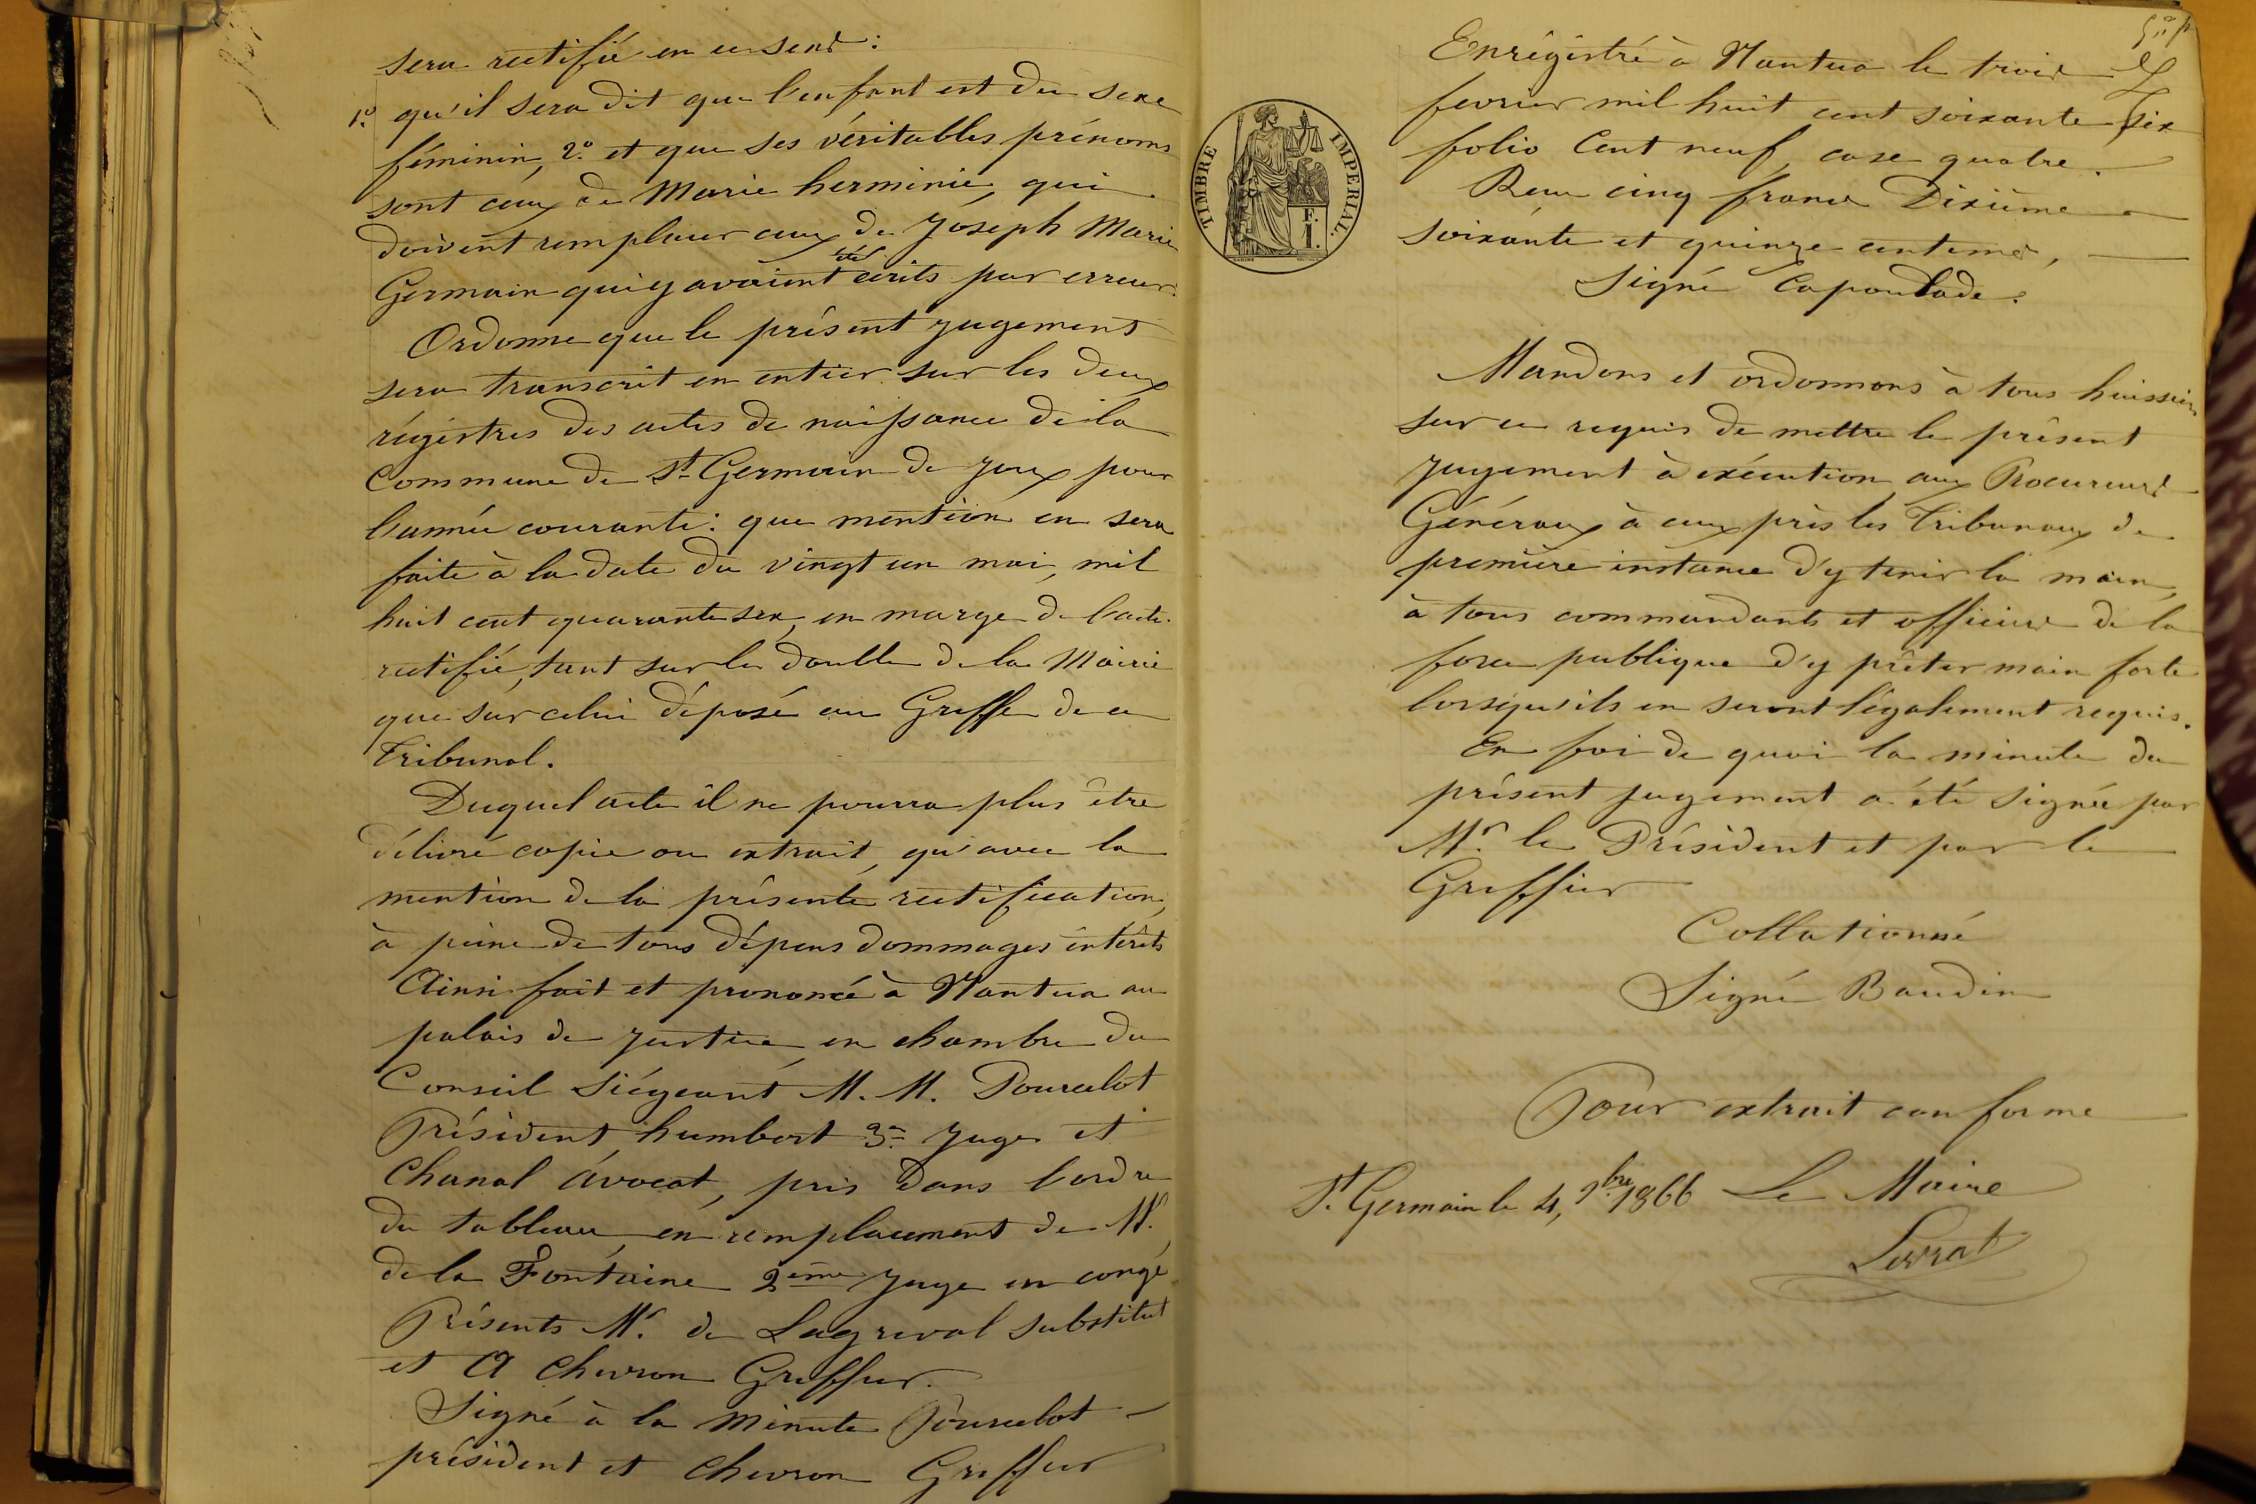 sera rectifié en ce sens :
1° qu'il sera dit que l'enfant est du sexe
féminin, 2° et que ses véritables prénoms
sont ceux de Marie herminie, qui
doivent remplacer ceux de Joseph Marie
Germain qui y avaient été écrits par erreur.
Ordonne que le présent jugement
sera transcrit en entier sur les deux
régistres des actes de naissance de la
Commune de St Germain de Joux pour
l'année courante : que mention en sera
faite à la date du vingt un mai, mil
huit cent quarante six, en marge de l'acte
rectifié, tant sur le double de la Mairie
que sur celui déposé au Greffe de ce
Tribunal.
Duquel acte il ne pourra plus être
délivré copie ou extrait, qu'avec la
mention de la présente rectification,
à peine de tous dépens dommages intérêts
Ainsi fait et prononcé à Nantua au
palais de Justice, en chambre du
Conseil Siégeant M. M. Pourcelot
Président humbert 3e Juge et
Chanal avocat, pris dans l'ordre
du tableau, en remplacement de Mr.
de la Fontaine 2ème Juge en congé
Présents Mr. de Lagreval substitut
et A Chevron Greffier.
Signé à la Minute Pourcelot
président et Chevron Greffier
TIMBRE IMPERIAL.
F.
I.
Enrégistré à Nantua le trois
fevrier mil huit cent soixante six
folio Cent neuf, case quatre.
Recu cinq francs Dixième
soixante et quinze centimes,
Signé Capoulade.
Mandons et ordonnons à tous huissiers
sur ce requis de mettre le présent
Jugement à exécution, aux Procureurs
Généraux à ceux près les Tribunaux de
première instance d'y tenir la main,
à tous commandants et officiers de la
force publique d'y prêter main forte
lorsqu'ils en seront légalement requis.
En foi de quoi la minute du
présent jugement a été signée par
Mr. le Président et par le
Greffier
Collationné
Signé Baudin
Pour extrait conforme
St. Germain le 4, 9bre 1866 Le Maire